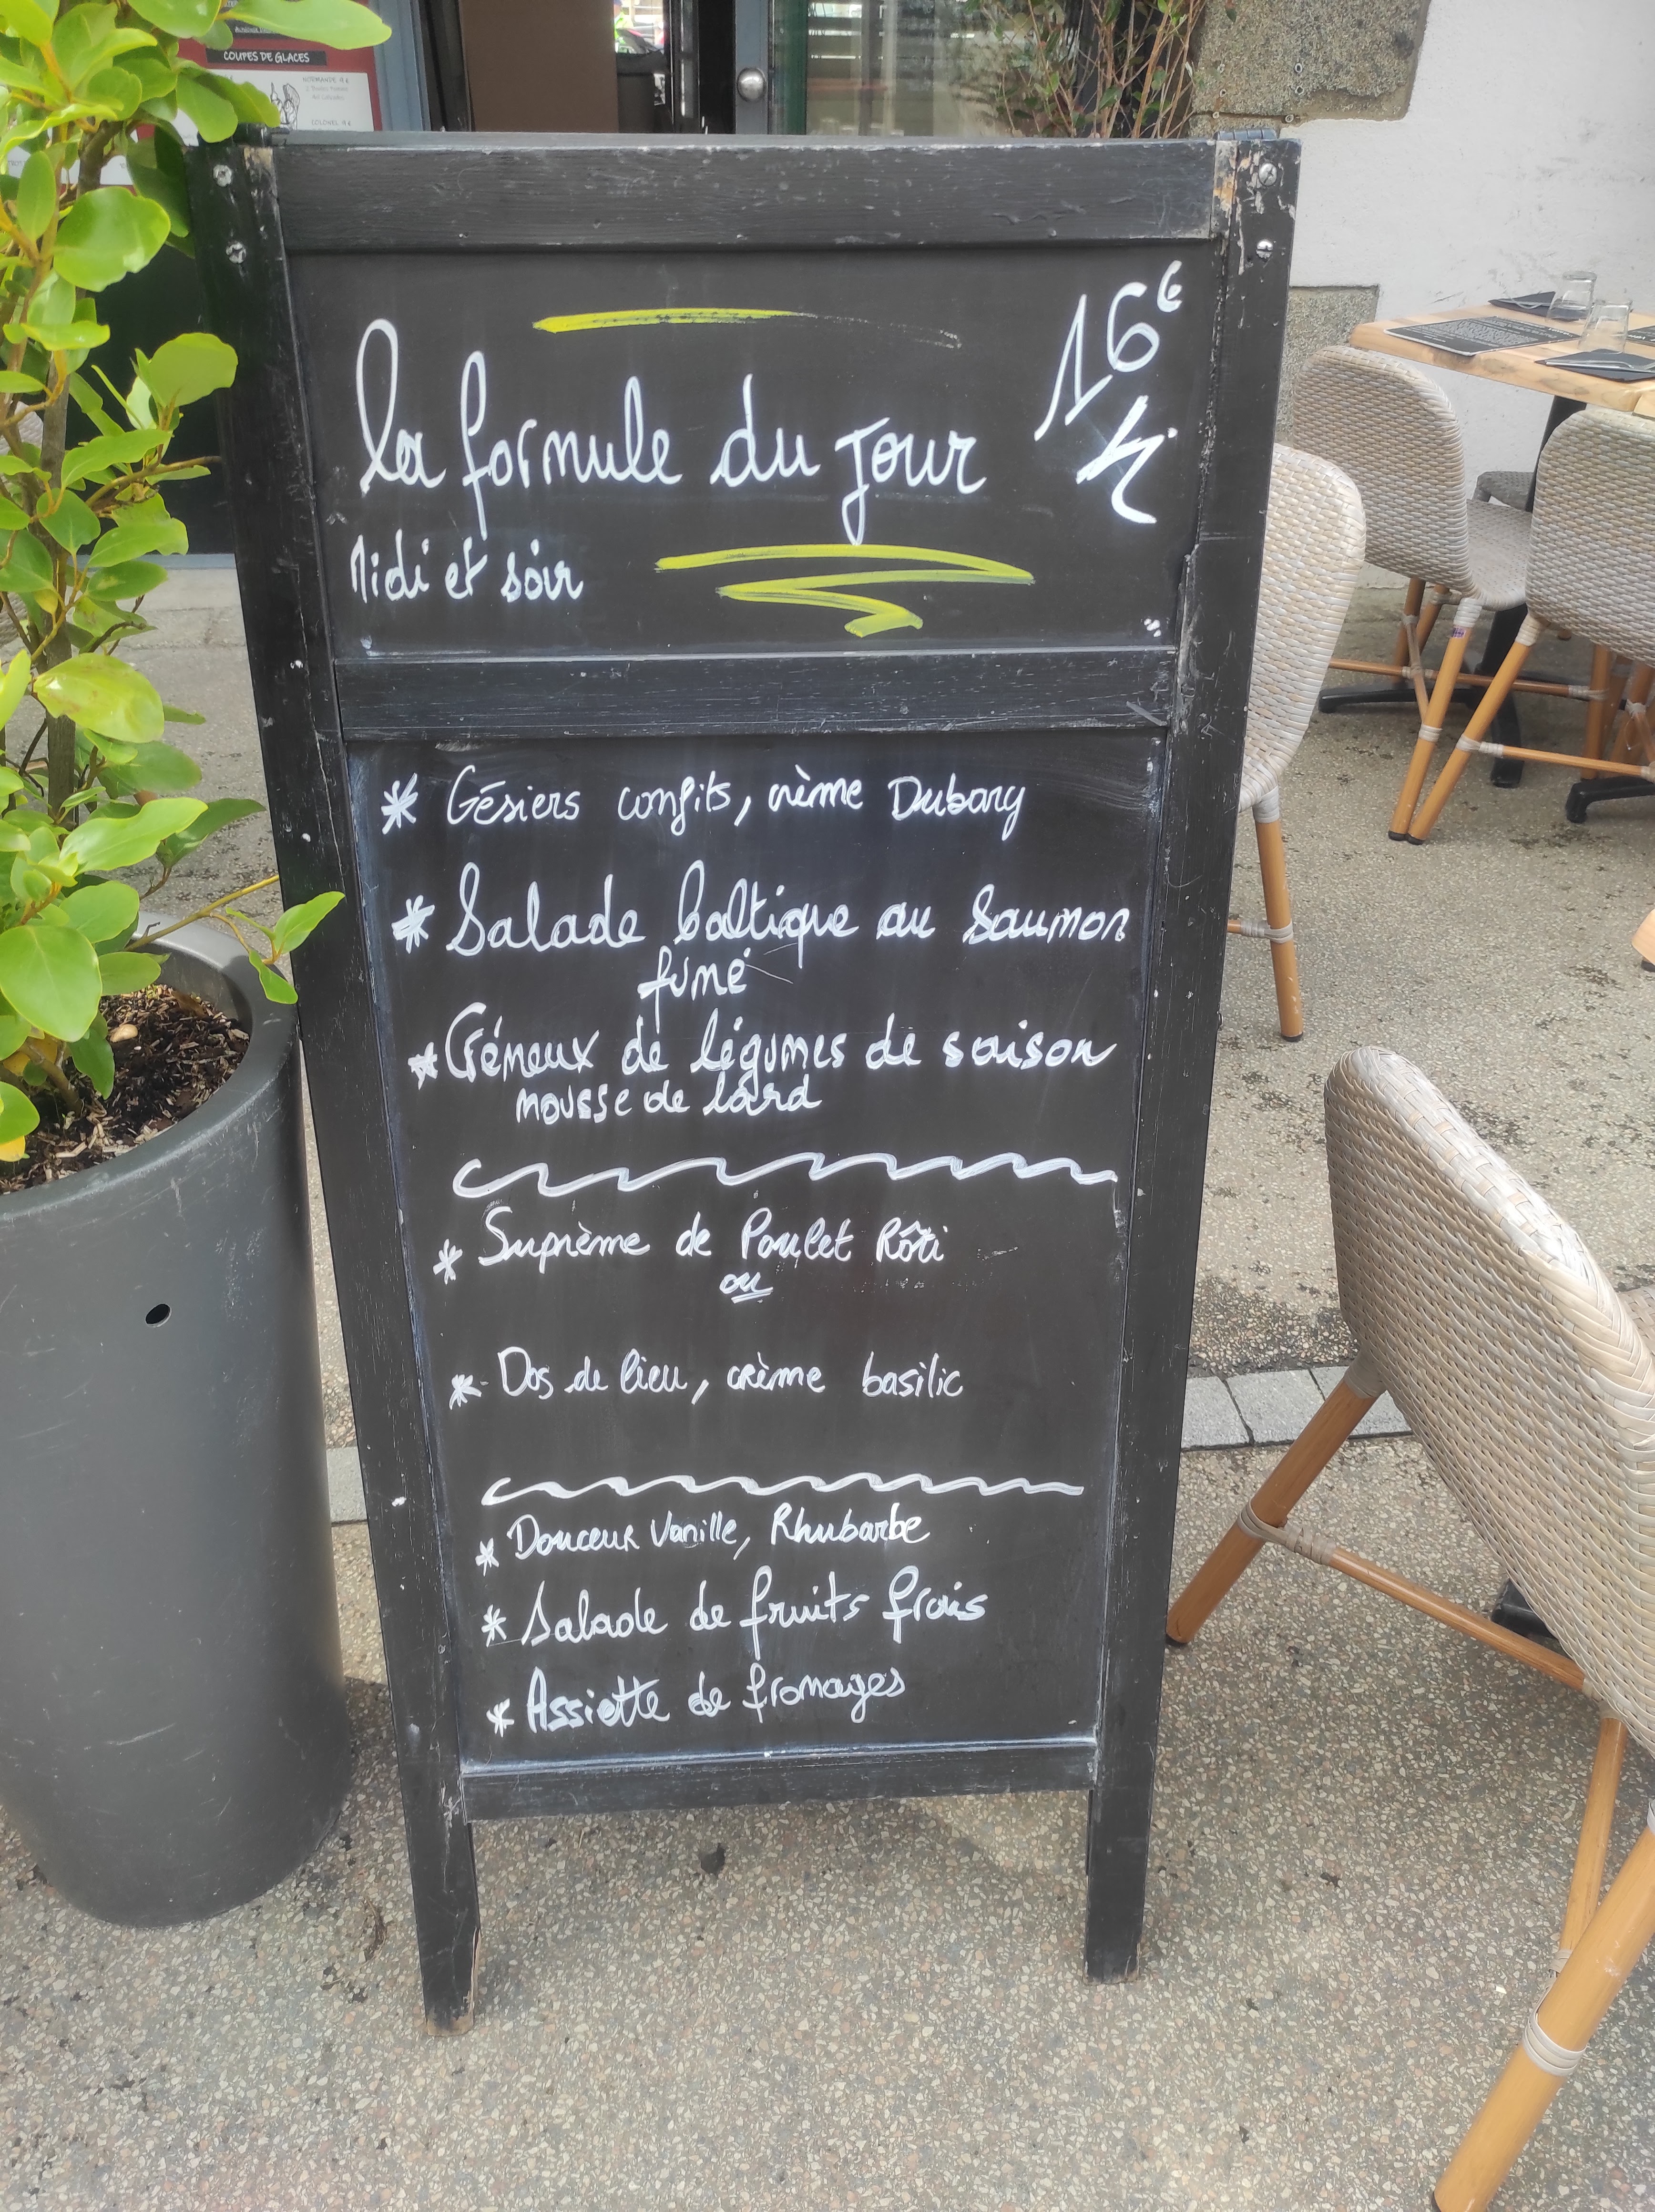 COUPES DE GLACES
NORMANDE 9 €
COLONEL 9 €
La formule du jour
16€
Midi et soir
* Gésiers confits, crème Dubary
* Salade baltique au saumon
fumé
* Crémeux de légumes de saison
mousse de lard
* Suprème de Poulet Rôti
ou
* Dos de lieu, crème basilic
* Douceur Vanille, Rhubarbe
* Salade de fruits frais
* Assiette de fromages